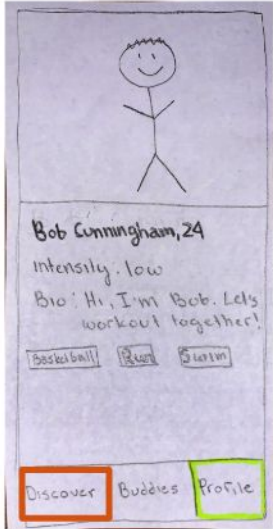 Bob Cunningham, 24
Intensity: low
Bio: Hi, I'm Bob. Lets
workout together!
Basketball Run Swim
Discover Buddies Profile